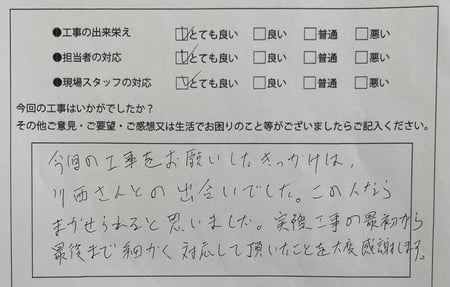 ●工事の出来栄え □とても良い □良い □普通 □悪い
●担当者の対応 □とても良い □良い □普通 □悪い
●現場スタッフの対応 □とても良い □良い □普通 □悪い
今回の工事はいかがでしたか？
その他ご意見・ご要望・ご感想又は生活でお困りのこと等がございましたらご記入ください。
今回の工事をお願いしたきっかけは、
川西さんとの出会いでした。この人なら
まかせられると思いました。実際工事の最初から
最後まで細かく対応して頂いたことを大変感謝します。